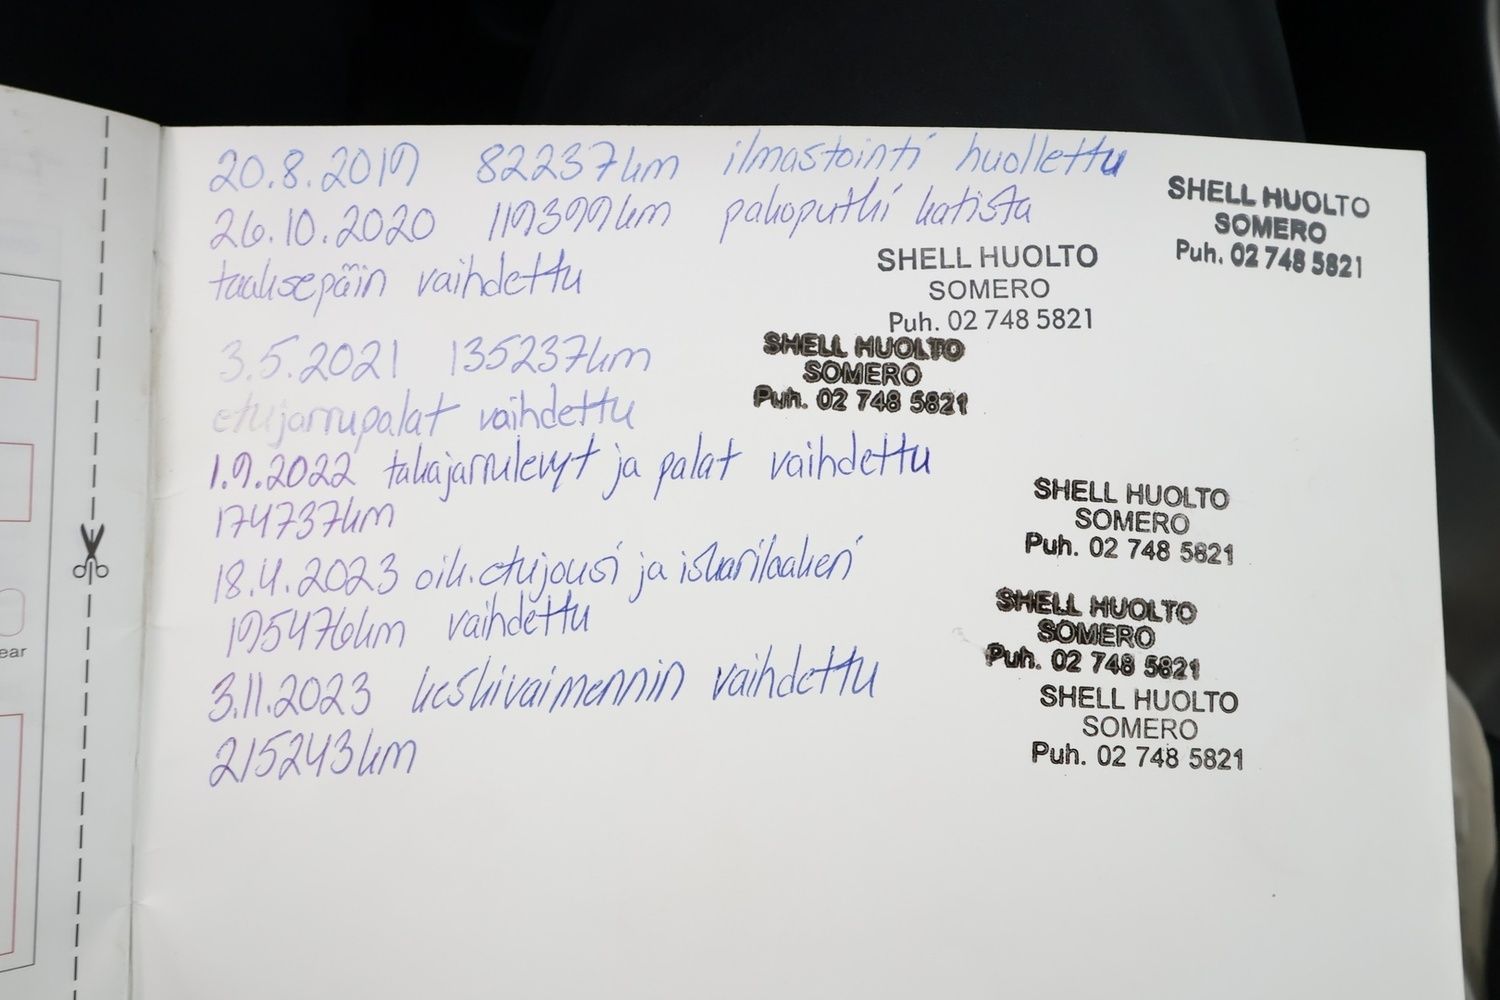 20.8.2019 82237km ilmastointi huollettu
SHELL HUOLTO
SOMERO
Puh. 02 748 5821
26.10.2020 119399km pakoputki katista
taaksepäin vaihdettu
SHELL HUOLTO
SOMERO
Puh. 02 748 5821
3.5.2021 135237km
etujarrupalat vaihdettu
SHELL HUOLTO
SOMERO
Puh. 02 748 5821
1.9.2022 takajarrulevyt ja palat vaihdettu
174737km
SHELL HUOLTO
SOMERO
Puh. 02 748 5821
18.4.2023 oik.etujousi ja iskarilaakeri
195476km vaihdettu
SHELL HUOLTO
SOMERO
Puh. 02 748 5821
3.11.2023 keskivaimennin vaihdettu
215243km
SHELL HUOLTO
SOMERO
Puh. 02 748 5821
ear